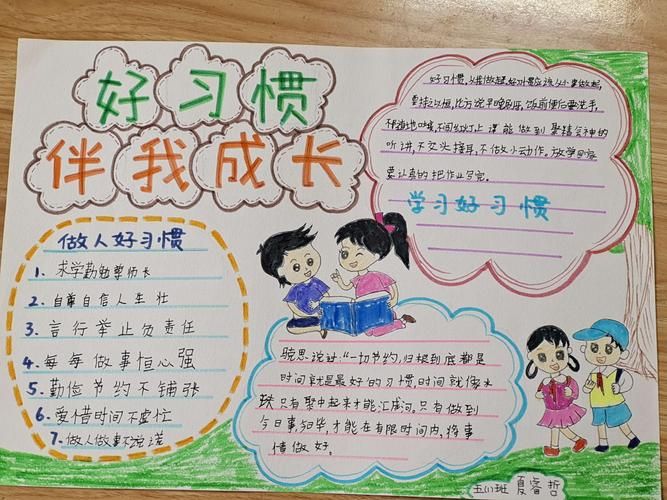 好习惯
伴我成长
做人好习惯
1. 求学勤勉尊师长
2. 自尊自信人生壮
3. 言行举止负责任
4. 每每做事恒心强
5. 勤俭节约不铺张
6. 爱惜时间不虚忙
7. 做人做事不说谎
好习惯,从我做起,好习惯应该从小事做起,
比方说早晚刷牙,饭前便后要洗手,
不随地吐痰,不闯红灯,上课能做到聚精会神的
听讲,不交头接耳,不做小动作。放学回家
要认真的把作业写完。
学习好习惯
思说过:“一切节约,归根到底都是
时间就是最好的习惯,时间就像水
只有聚中起来才能汇成河。只有做到
今日事,今日毕,才能在有限时间内,将事
情做好。
五(1)班 夏睿哲